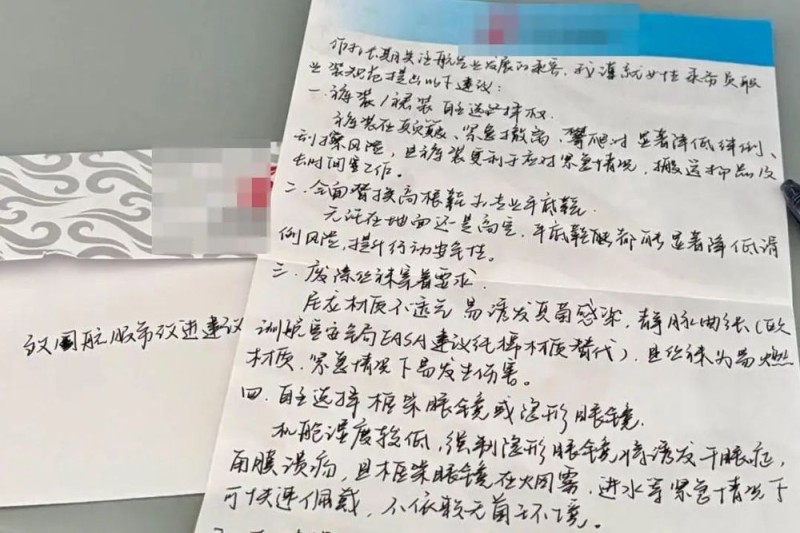 作为长期关注航空业发展的乘客，我谨就女性乘务员职
业装规范提出以下建议：
一. 裤装/裙装自主选择权.
裤装在颠簸、紧急撤离、攀爬时显著降低绊倒、
刮擦风险，且裤装更利于应对紧急情况，搬运物品及
长时间工作。
二. 全面替换高根鞋为专业平底鞋.
无论在地面还是高空，平底鞋都能显著降低滑
倒风险，提升行动安全性。
三. 废除丝袜穿着要求.
尼龙材质不透气易诱发真菌感染，静脉曲张（欧
洲航空安全局EASA建议纯棉材质替代），且丝袜为易燃
材质，紧急情况下易发生伤害。
四. 自主选择框架眼镜或隐形眼镜.
机舱湿度较低，强制隐形眼镜将诱发干眼症，
角膜溃疡，且框架眼镜在烟雾，进水等紧急情况下
可快速佩戴，不依赖无菌环境。
致国航服务改进建议